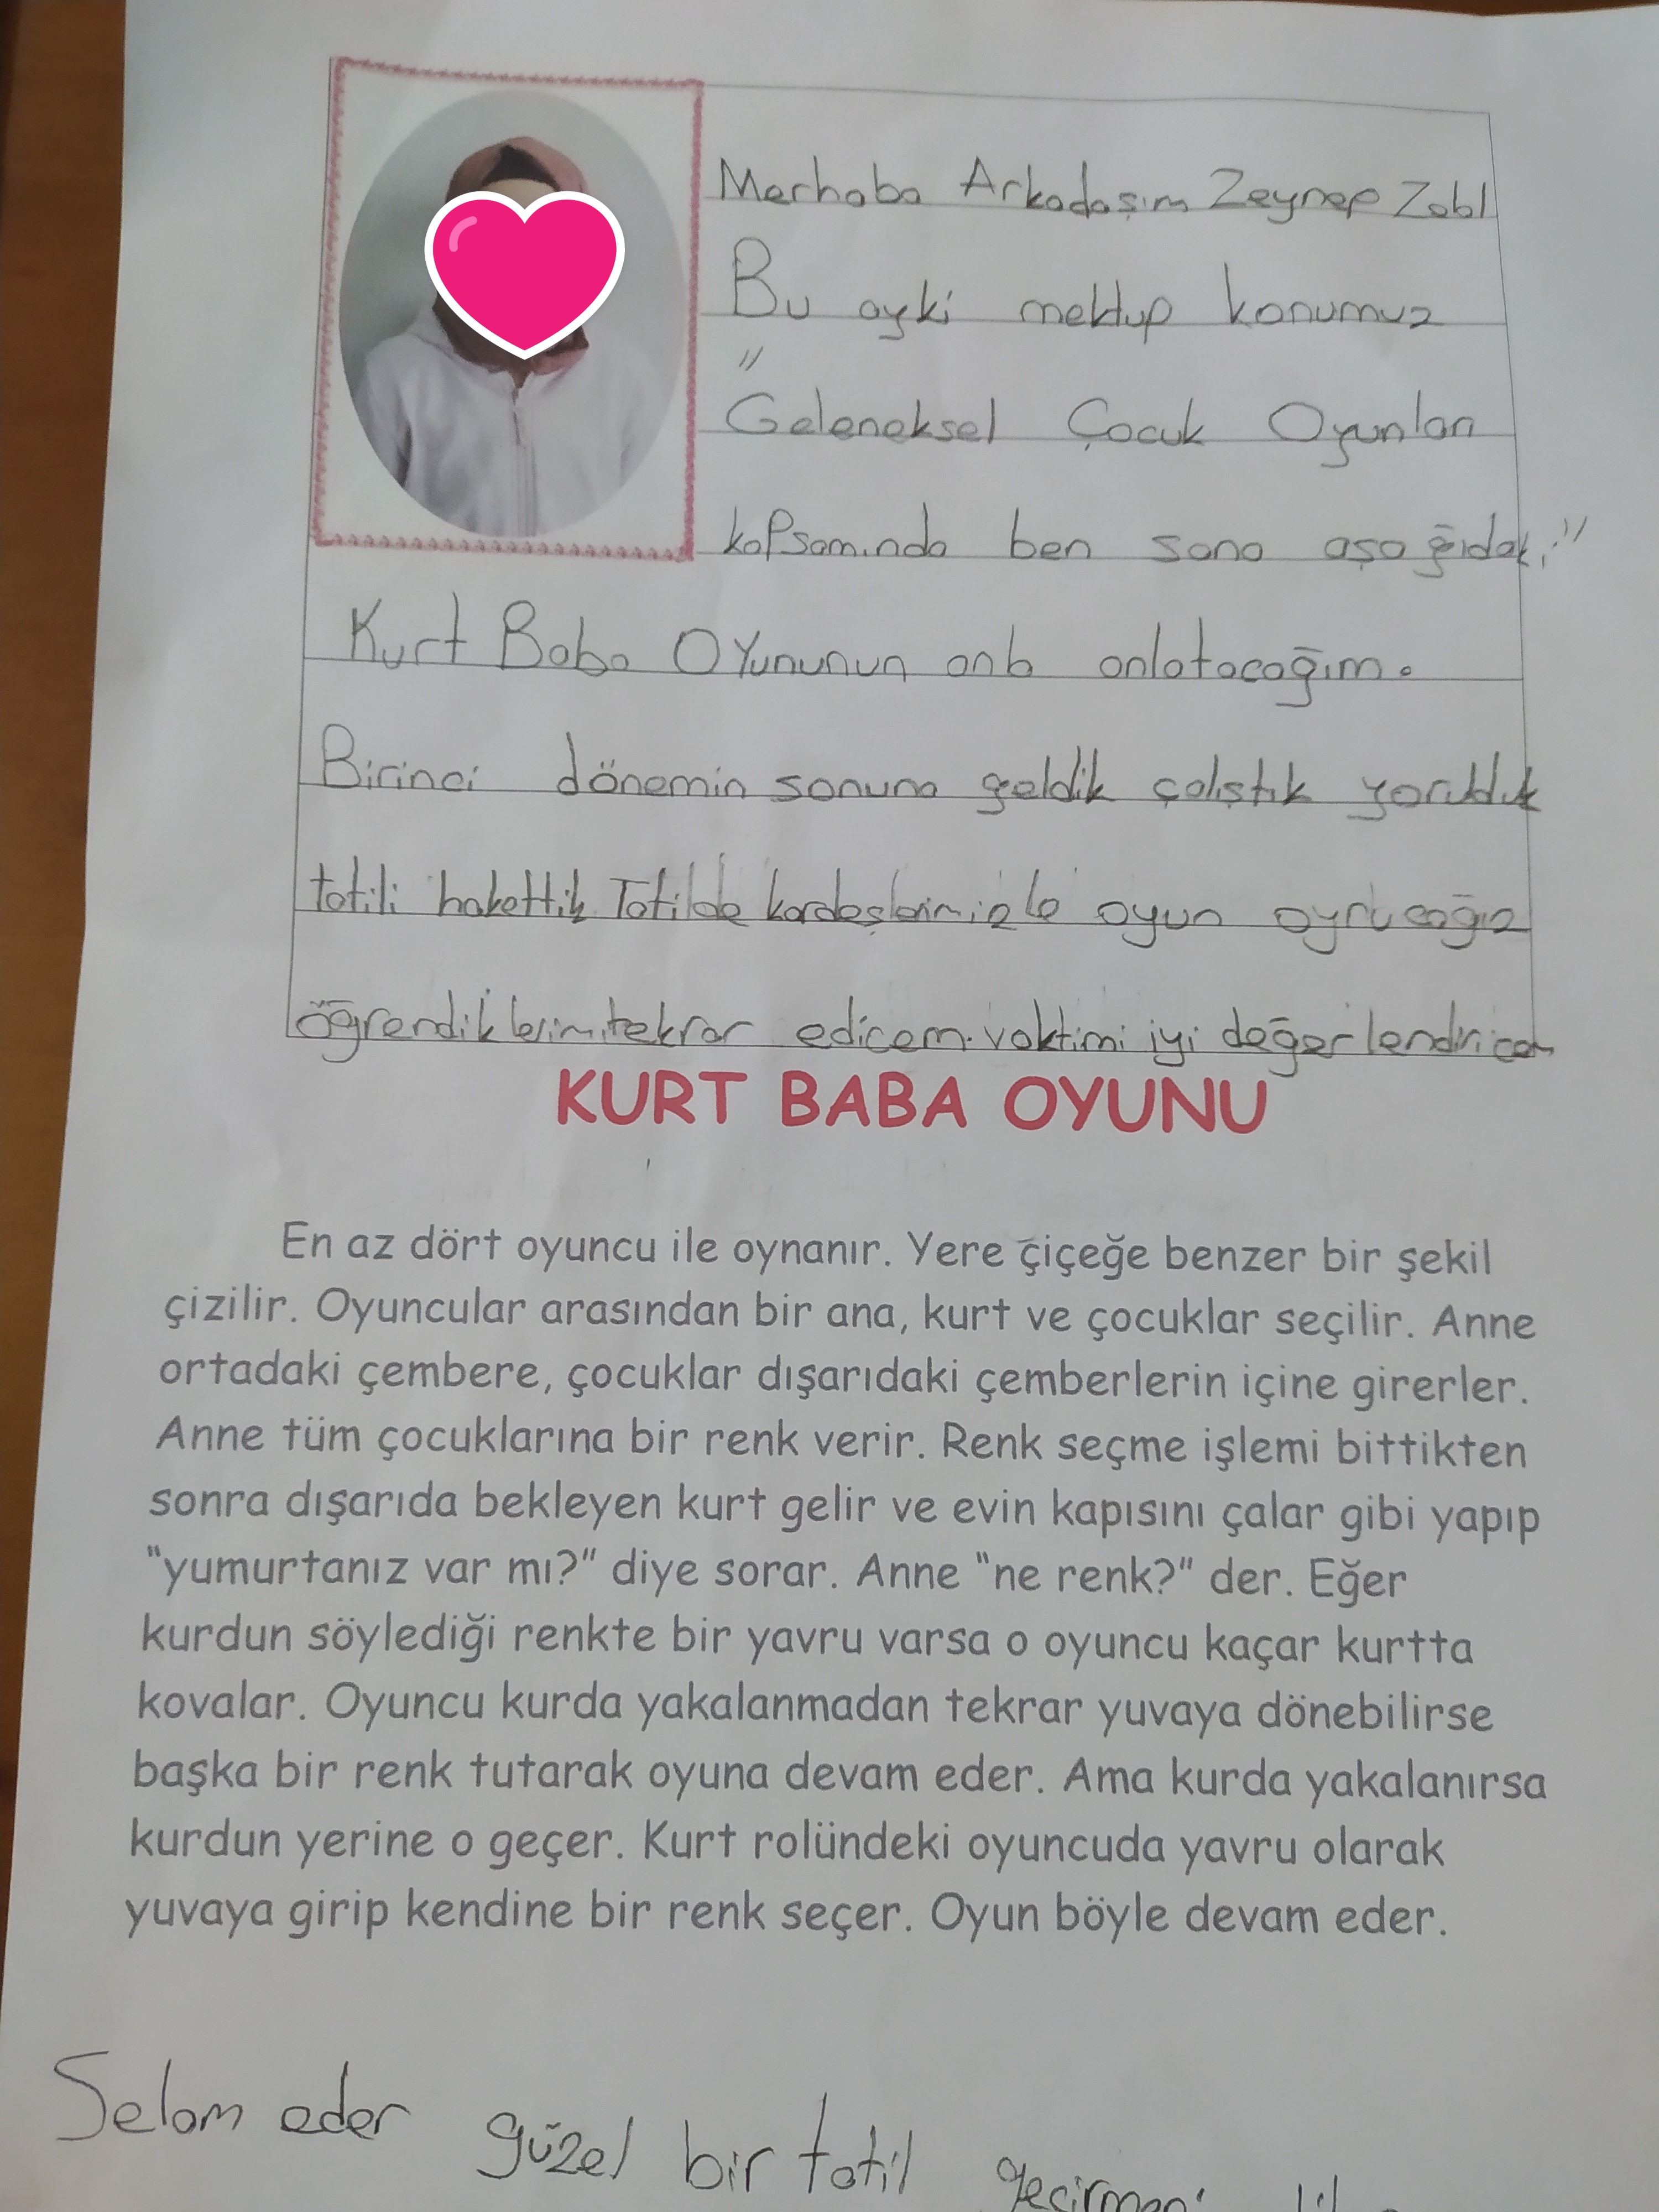 Merhaba Arkadaşım Zeynep
Bu ayki mektup konumuz
"
Geleneksel Çocuk Oyunları
kapsamında ben sana aşağıdaki"
Kurt Baba Oyununun anlatacağım.
Birinci dönemin sonuna geldik çalıştık yorulduk
tatili hakettik Tatilde kardeşlerimizle oyun
öğrendiklerimi tekrar edicem. vaktimi iyi değerlendiricem
KURT BABA OYUNU
En az dört oyuncu ile oynanır. Yere çiçeğe benzer bir şekil
çizilir. Oyuncular arasından bir ana, kurt ve çocuklar seçilir. Anne
ortadaki çembere, çocuklar dışarıdaki çemberlerin içine girerler.
Anne tüm çocuklarına bir renk verir. Renk seçme işlemi bittikten
sonra dışarıda bekleyen kurt gelir ve evin kapısını çalar gibi yapıp
"yumurtanız var mı?" diye sorar. Anne "ne renk?" der. Eğer
kurdun söylediği renkte bir yavru varsa o oyuncu kaçar kurtta
kovalar. Oyuncu kurda yakalanmadan tekrar yuvaya dönebilirse
başka bir renk tutarak oyuna devam eder. Ama kurda yakalanırsa
kurdun yerine o geçer. Kurt rolündeki oyuncuda yavru olarak
yuvaya girip kendine bir renk seçer. Oyun böyle devam eder.
Selam eder güzel bir tatil geçirmeni